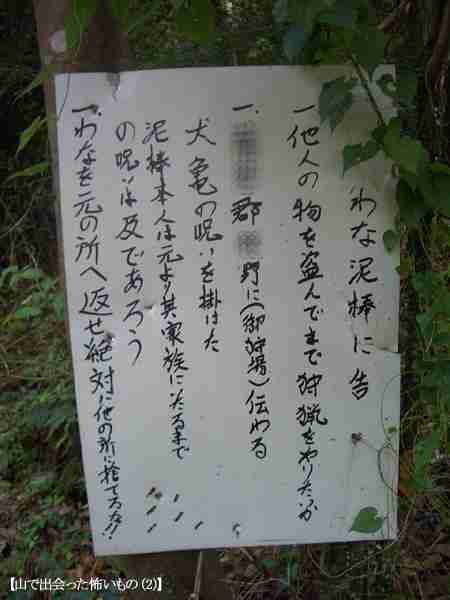 わな泥棒に告
一他人の物を盗んでまで狩猟をやりたいか
一. 郡 野に(御狩場)伝わる
犬亀の呪いを掛けた
泥棒本人は元より其家族にいたるまで
の呪いは及であろう
一.わなを元の所へ返せ絶対に他の所に捨てるな!!
【山で出会った怖いもの(2)】